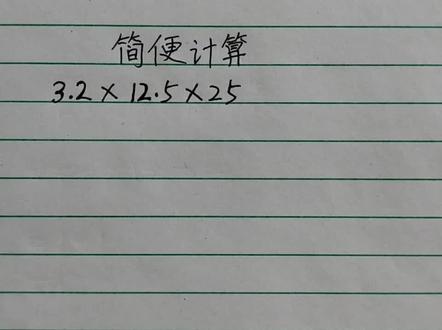 简便计算
3.2×12.5×25